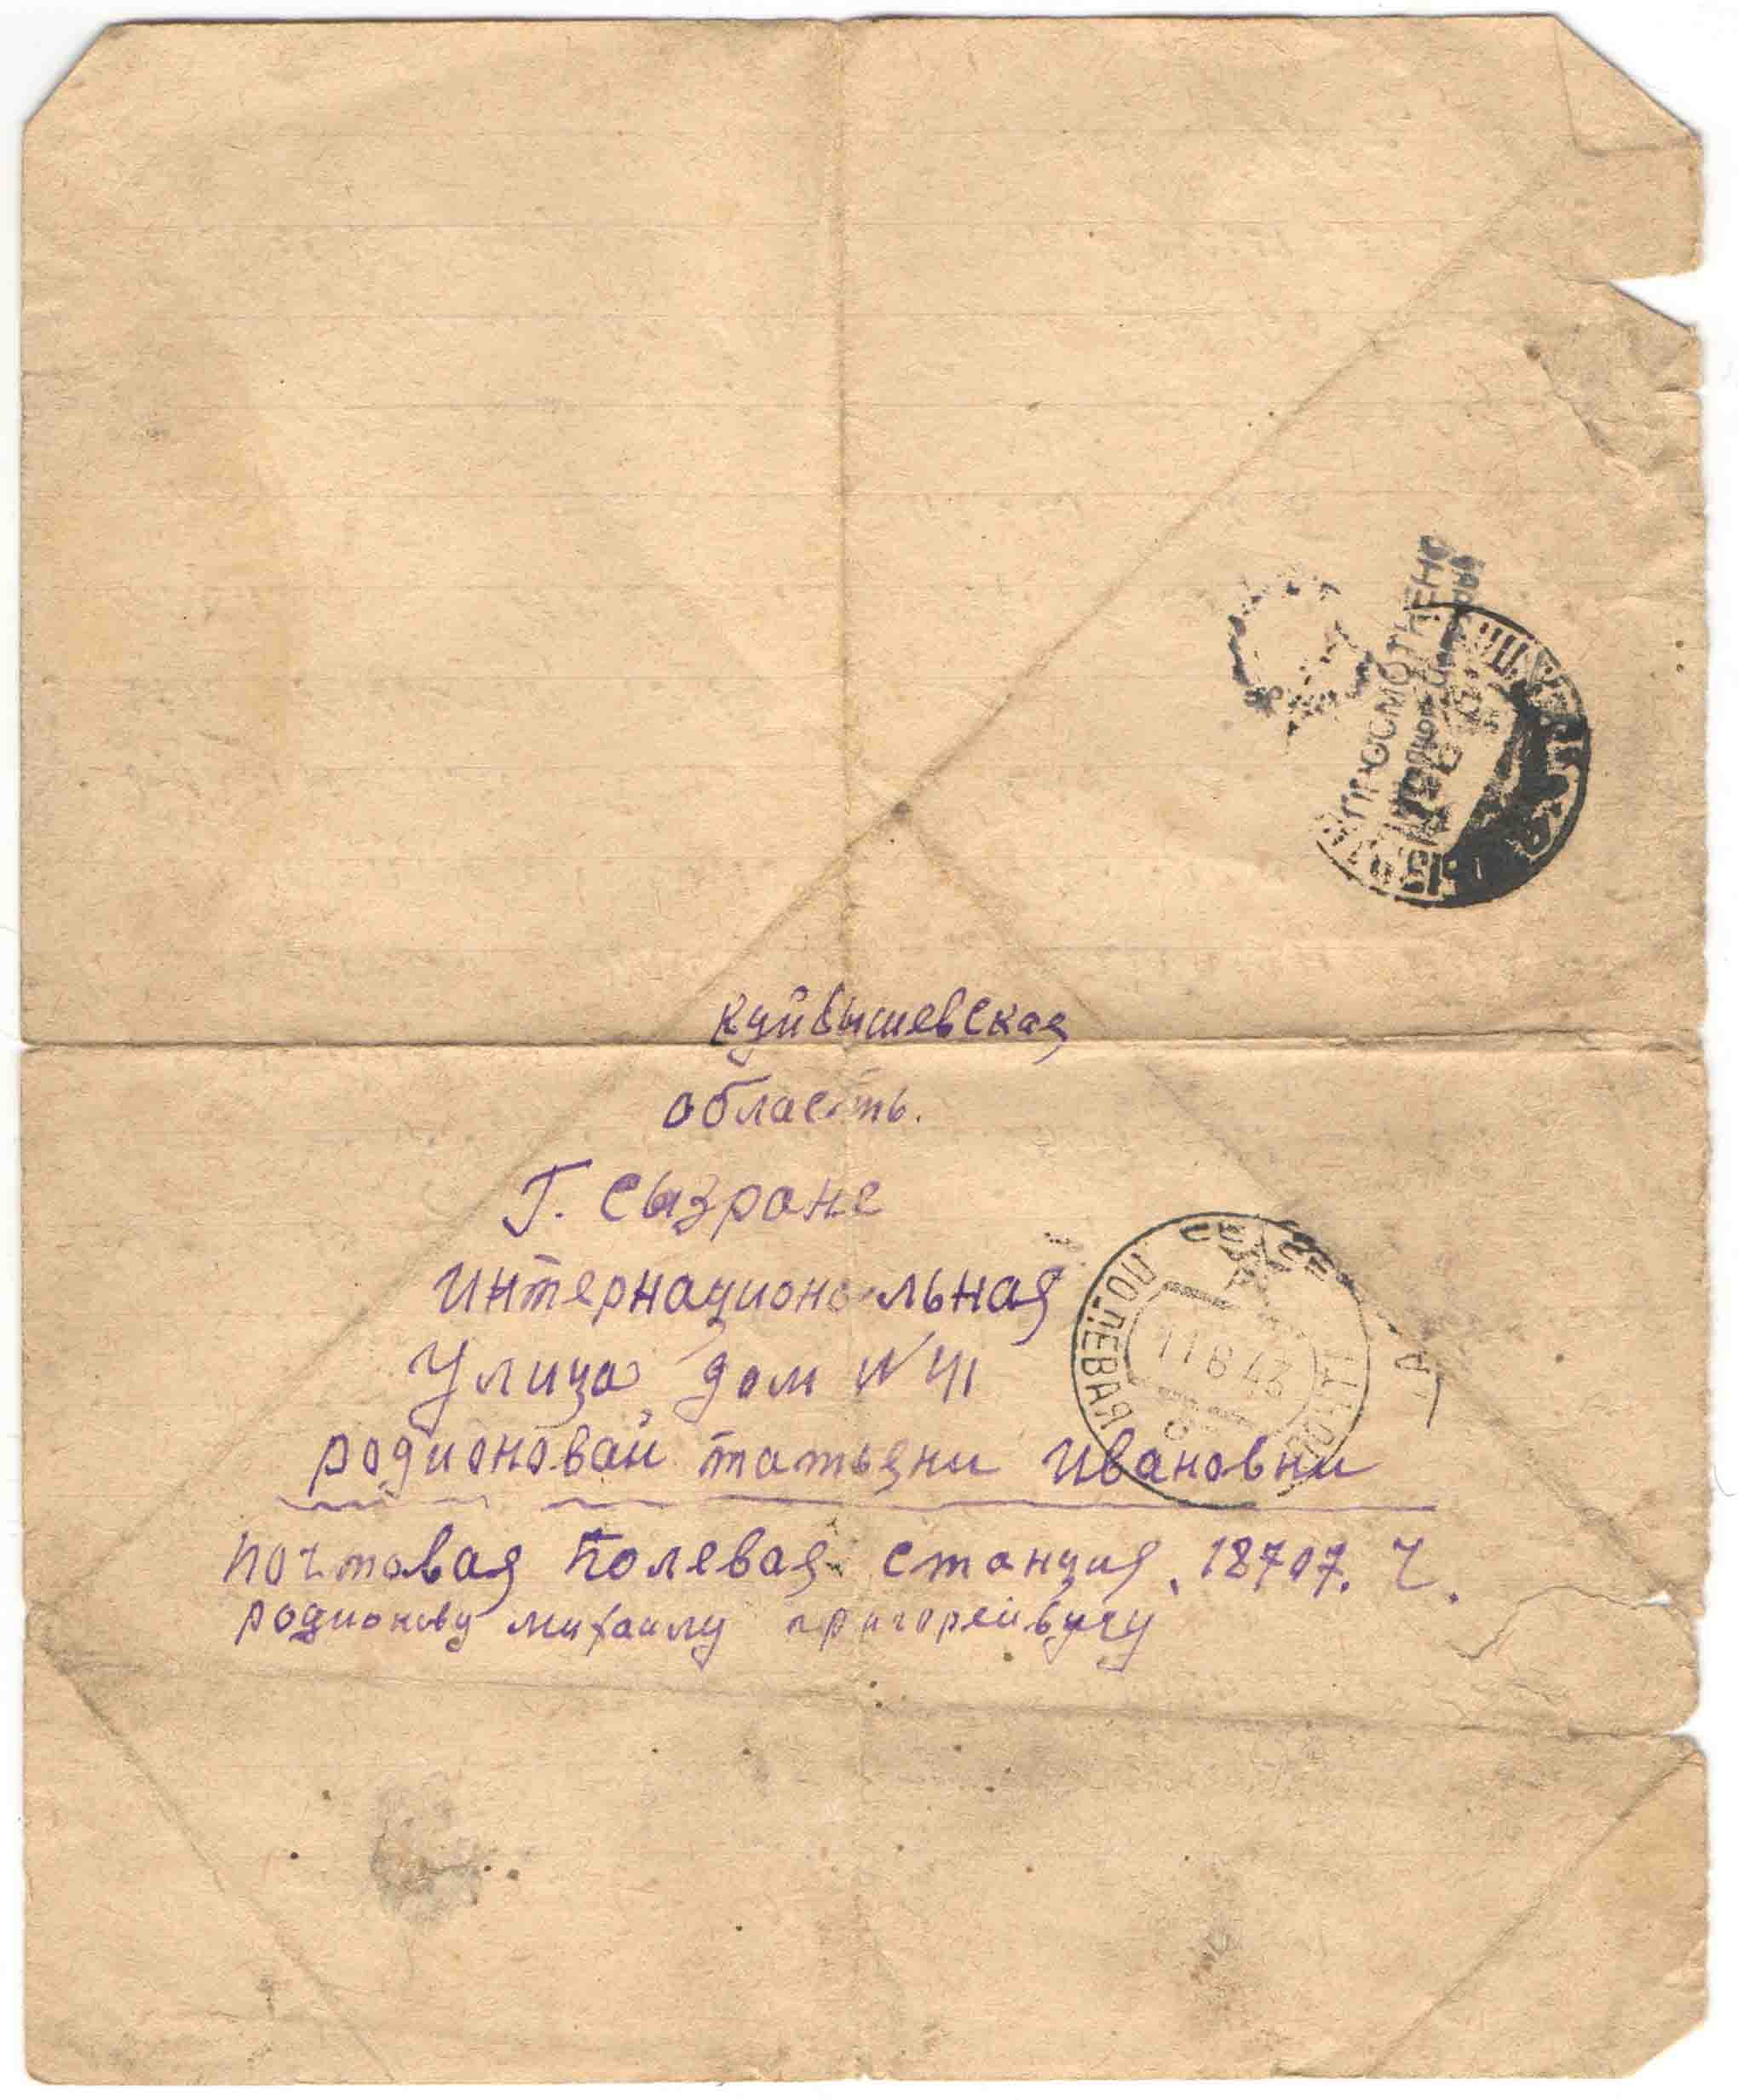 ПРОСМОТРЕНО
куйбышевская
область.
Г. Сызроне
интернациональная
Улица дом №41
СССР
ПОЛЕВАЯ ПОЧТА
11 8 43
родионовай татьяни Ивановни
почтовая Полевая станция. 18707. Ч.
родионову михаилу григорейвучу